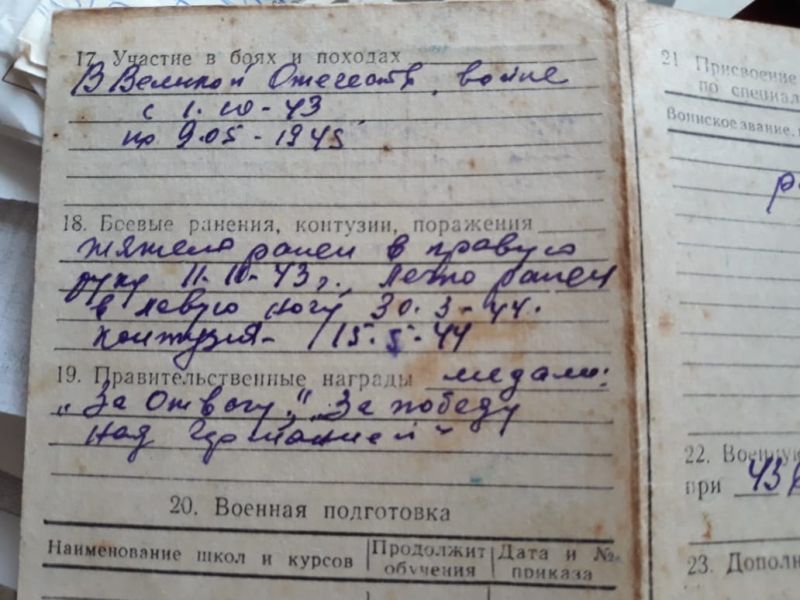 17. Участие в боях и походах
В Великой Отечеств. войне
с 1.10-43
по 9.05-1945
18. Боевые ранения, контузии, поражения
тяжело ранен в правую
руку 11.10-43г., легко ранен
в левую ногу 30.3-44.
контузия- 15.5-44
19. Правительственные награды медали:
„За отвагу," „За победу
над Германией"
20. Военная подготовка
Наименование школ и курсов Продолжит обучения Дата и № приказа
21 Присвоение
по специал
Воинское звание,
22. Военную
при 43
23. Дополн